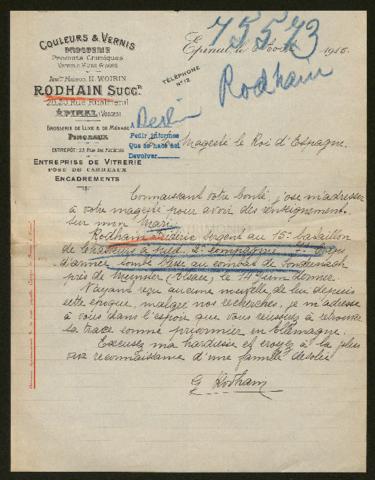 COULEURS & VERNIS
DROGUERIE
Produits Chimiques
VERRES A VITRES & GLACES
Anc.ne Maison H. WOIRIN
RODHAIN Succr.
20,30 Rue Rualménil
ÉPINAL (VOSGES)
BROSSERIE DE LUXE & DE MÉNAGE
PINCEAUX
ENTREPRISE DE VITRERIE
POSE DE CARREAUX
ENCADREMENTS
75573
Epinal, le 1915.
TÉLÉPHONE
N° 12
Rodhain
A Berlin
Pedir informes
Que se hace así
Devolver
Magesté le Roi d'Espagne.
Connaissant votre bonté, j'ose m'adresser
à votre magesté pour avoir des renseignements
sur mon Mari.
Rodhain Sergent au 15e bataillon
de Chasseurs à Pied, 2e Compagnie
d'armée, tombé au combat de
près de (Alsace), le 14 Juin dernier.
N'ayant reçu aucune nouvelle de lui depuis
cette époque, malgré nos recherches, je m'adresse
à vous dans l'espoir que vous réussirez à retrouver
sa trace comme prisonnier en Allemagne.
Excusez ma hardiesse et croyez à la plus
reconnaissance d'une famille désolée.
G Rodhain